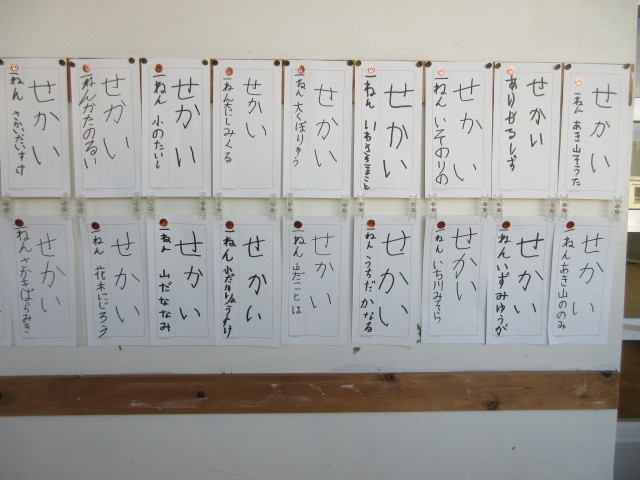 せかい
一ねん あき山そうた
せかい
ありせるしず
せかい
一ねん いそのりの
せかい
一ねん いわさきまこと
せかい
一ねん 大くぼりゅう
せかい
一ねん にしみくる
せかい
一ねん 小のたいし
せかい
一ねん かたのるい
せかい
一ねん さかいだいすけ
せかい
一ねん あき山ののみ
せかい
一ねん いずみゆうが
せかい
一ねん いち川みそら
せかい
一ねん うちだかなる
せかい
一ねん 山だことは
せかい
一ねん
せかい
一ねん 山だななみ
せかい
一ねん 花木にじろう
せかい
一ねん さかきばらみき